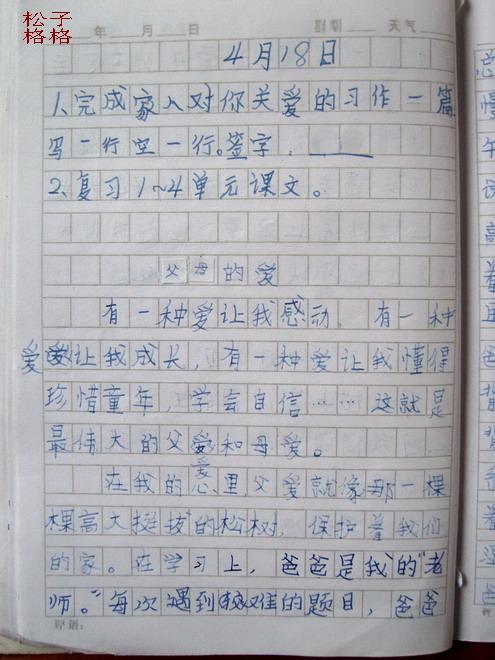 松子
格格
年 月 日 星期 天气
4月18日
1、完成家人对你关爱的习作一篇
写一行空一行。签字.
2、复习1~4单元课文。
父母的爱
有一种爱让我感动，有一种
爱让我成长，有一种爱让我懂得
珍惜童年，学会自信……这就是
最伟大的父爱和母爱。
在我的心里，父爱就像那一棵
棵高大挺拔的松树，保护着我们
的家。在学习上，爸爸是我的“老
师。”每次遇到较难的题目，爸爸
评语：